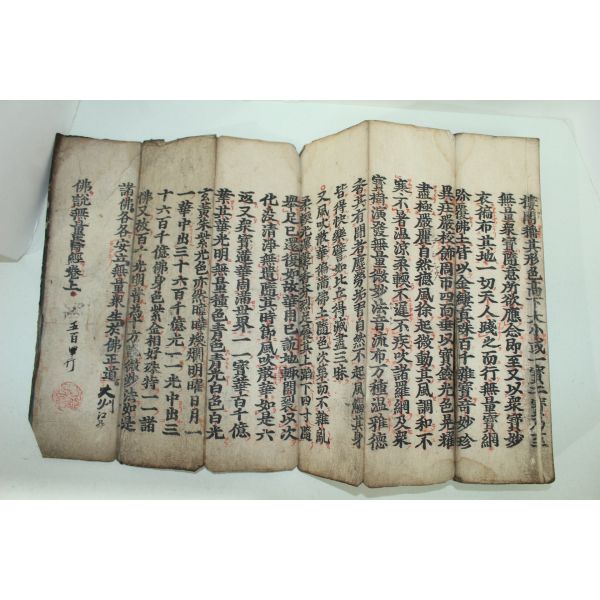 樓閣稱其形色高下大小或一寶二寶乃至
無量衆寶隨意所欲應念即至又以衆寶妙
衣徧布其地一切天人踐之而行無量寶網
弥覆佛土皆以金縷真珠百千雜寶奇妙珍
異莊嚴校飾周帀四面垂以寶鈴光色晃耀
盡極嚴麗自然德風徐起微動其風調和不
寒不暑温涼柔軟不遲不疾吹諸羅網及衆
寶樹演發無量微妙法音流布万種温雅德
香其有聞者塵勞垢習自然不起風觸其身
皆得快樂譬如比丘得滅盡三昧
又風吹散華徧滿佛土隨色次第而不雜亂
柔軟光澤馨香芬烈足履其上蹈下四寸隨
擧足已還復如故華用已訖地輒開裂以次
化没清淨無遺隨其時節風吹散華如是六
返又衆寶蓮華周滿世界一一寶華百千億
葉其華光明無量種色青色青光白色白光
玄黄朱紫光色亦然暐曄煥爛明曜日月一
一華中出三十六百千億光一一光中出三
十六百千億佛身色紫金相好殊特一一諸
佛又放百千光明普爲十方說微妙法如是
諸佛各各安立無量衆生於佛正道
佛說無量壽經卷上